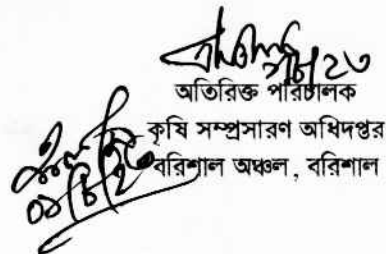 অতিরিক্ত পরিচালক
কৃষি সম্প্রসারণ অধিদপ্তর
বরিশাল অঞ্চল, বরিশাল